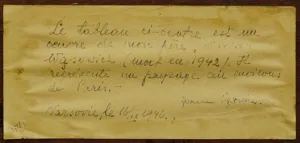 Le tableau ci-contre est un
œuvre de mon père,
(mort en 1942). Il
représente un paysage aux environs
de Paris.
Varsovie, le 16